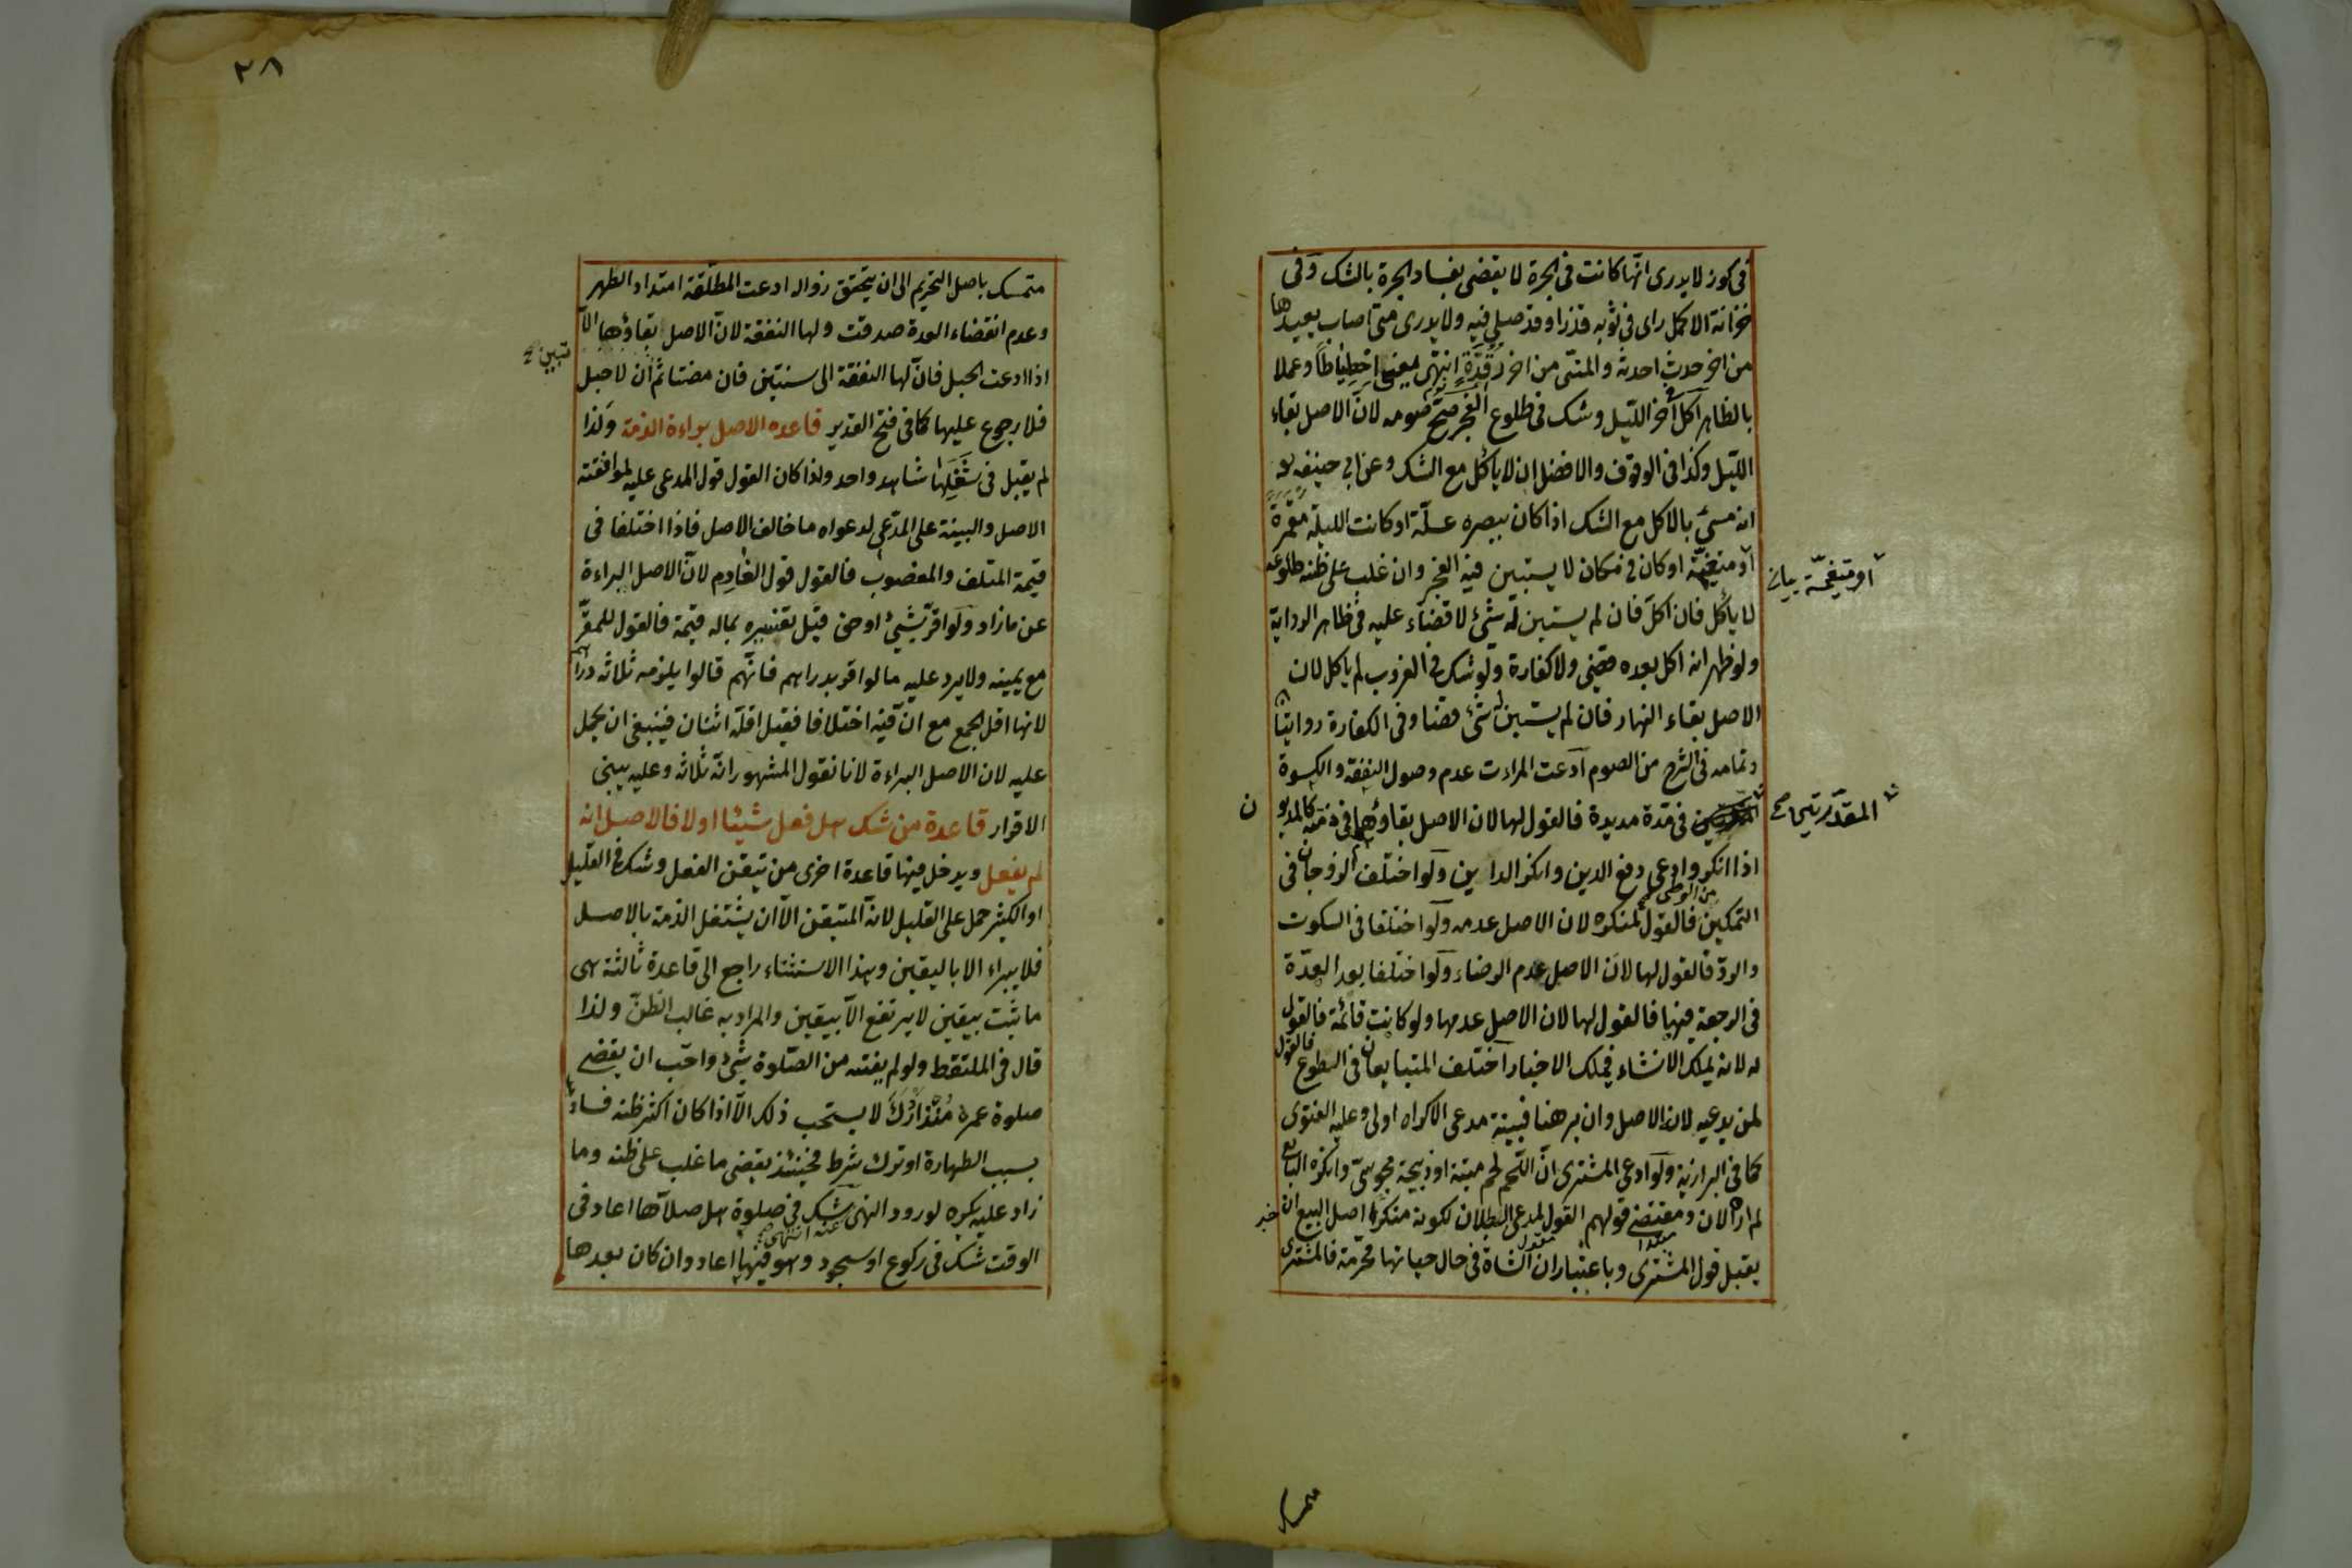 في كوز لا يدرى انها كانت في الجرة لا يقضى بفساد الجرة بالشك وفي
خزانة الاكمل راى في ثوبه قذرا وقد صلى فيه ولا يدرى متى اصاب يعيدها
من اخر حدث احدثه والمنى من اخر رقدة انتهى يعنى احتياطا وعملا
بالظاهر اكل آخر الليل وشك في طلوع الفجر صح صومه لان الاصل بقاء
الليل وكذا في الوقوف والافضل ان لا ياكل مع الشك وعن ابي حنيفه
انه مسئ بالاكل مع الشك اذا كان ببصره علة او كانت الليلة مقمرة
او متغيمة او كان في مكان لا يستبين فيه الفجر وان غلب على ظنه طلوعه
او متغيمة بيان
لا ياكل فان اكل فان لم يستبين له شئ لا قضاء عليه في ظاهر الرواية
ولو ظهر انه اكل بعده قضى ولا كفارة ولو شك في الغروب لم ياكل لان
الاصل بقاء النهار فان لم يستبين له شئ قضا وفي الكفارة روايتان
وتمامه في الشرح من الصوم ادعت المراءت عدم وصول النفقة والكسوة
المقدرتين صح
في مدة مديدة فالقول لها لان الاصل بقاؤهما في ذمته كالمديون
اذا انكر وادعى دفع الدين وانكر الداين ولو اختلف الزوجان في
التمكين من الوطى فالقول لمنكره لان الاصل عدمه ولو اختلفا في السكوت
والرد فالقول لها لان الاصل عدم الرضاء ولو اختلفا بعد العدة
في الرجعة فيها فالقول لها لان الاصل عدمها ولو كانت قائمة فالقول
له لانه يملك الانشاء فيملك الاخبار اختلف المتبايعان في الطوع فالقول
لمن يدعيه لانه الاصل وان برهنا فبينة مدعى الاكراه اولى وعليه الفتوى
كما في البزازية ولو ادعى المشترى ان اللحم لحم ميتة او ذبيحة مجوسى وانكره البائع
لم اره الان ومقتضى قولهم القول لمدعى البطلان لكونه منكرا اصل البيع ان
يقبل قول المشترى وباعتبار ان الشاة في حال حياتها محرمة فالمشترى
متمسك
٢٨
متمسك باصل التحريم الى ان يتحقق زواله ادعت المطلقة امتداد الطهر
وعدم انقضاء العدة صدقت ولها النفقة لان الاصل بقاؤها الا
اذا ادعت الحبل فان لها النفقة الى سنتين فان مضتا ثم ان لا حبل
تبين
فلا رجوع عليها كما في فتح القدير قاعده الاصل براءة الذمة وكذا
لم يقبل في شغلها شاهد واحد ولذا كان القول قول المدعى عليه لموافقته
الاصل والبينة على المدعى لدعواه ما خالف الاصل فاذا اختلفا في
قيمة المتلف والمغصوب فالقول قول الغارم لان الاصل البراءة
عن ما زاد ولو اقر بشئ او حق قبل تفسيره بماله قيمة فالقول للمقر
مع يمينه ولا يرد عليه ما لو اقر بدراهم فانهم قالوا يلزمه ثلاثه دراهم
لانها اقل الجمع مع ان فيه اختلافا فقيل اقله اثنان فينبغى ان يحمل
عليه لان الاصل البراءة لانا نقول المشهور انه ثلاثه وعليه يبنى
الاقرار قاعدة من شك هل فعل شيئا اولا فالاصل انه
لم يفعل ويدخل فيها قاعدة اخرى من تيقن الفعل وشك في القليل
او الكثير حمل على القليل لانه المتيقن الا ان يشتغل الذمة بالاصل
فلا يبراء الا باليقين وهذا الاستثناء راجع الى قاعدة ثالثة هى
ما ثبت بيقين لا يرتفع الا بيقين والمراد به غالب الظن ولذا
قال في الملتقط ولو لم يفته من الصلوة شئ واحب ان يقضى
صلوة عمره منذ ادرك لا يستحب ذلك الا اذا كان اكثر ظنه فسادها
بسبب الطهارة او ترك شرط فحينئذ يقضى ما غلب على ظنه وما
زاد عليه يكره لورود النهى عنه انتهى شك في صلوة هل صلاها اعاد في
الوقت شك في ركوع او سجود وهو فيها اعاد وان كان بعدها